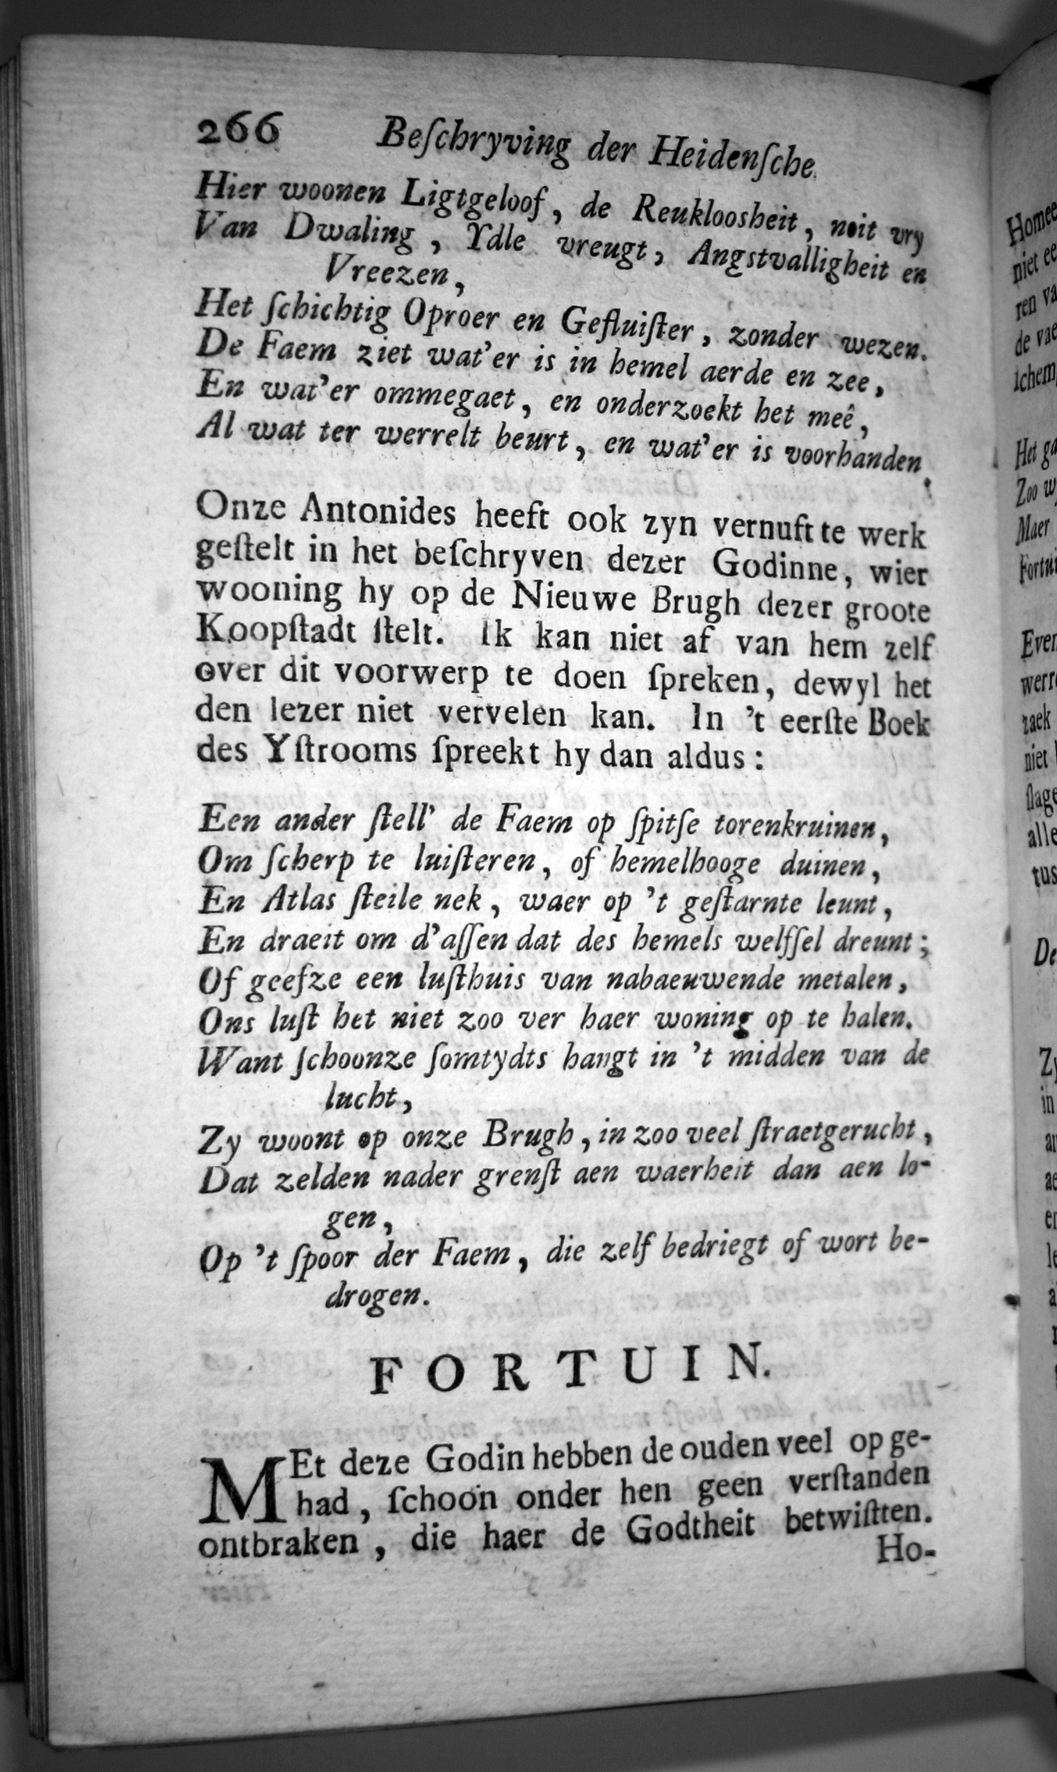 266 Beſchryving der Heidenſche
Hier woonen Ligtgeloof, de Reukloosheit, noit vry
Van Dwaling, Ydle vreugt, Angstvalligheit en
Vreezen,
Het ſchichtig Oproer en Gefluiſter, zonder wezen.
De Faem ziet wat'er is in hemel aerde en zee,
En wat'er ommegaet, en onderzoekt het meê,
Al wat ter werrelt beurt, en wat'er is voorhanden.
Onze Antonides heeft ook zyn vernuft te werk
geſtelt in het beſchryven dezer Godinne, wier
wooning hy op de Nieuwe Brugh dezer groote
Koopſtadt ſtelt. Ik kan niet af van hem zelf
over dit voorwerp te doen ſpreken, dewyl het
den lezer niet vervelen kan. In 't eerſte Boek
des Yſtrooms ſpreekt hy dan aldus:
Een ander ſtell' de Faem op ſpitſe torenkruinen,
Om ſcherp te luiſteren, of hemelhooge duinen,
En Atlas ſteile nek, waer op 't geſtarnte leunt,
En draeit om d'aſſen dat des hemels welfſel dreunt;
Of geefze een luſthuis van nabaeuwende metalen,
Ons luſt het niet zoo ver haer woning op te halen.
Want ſchoonze ſomtydts hangt in 't midden van de
lucht,
Zy woont op onze Brugh, in zoo veel ſtraetgerucht,
Dat zelden nader grenſt aen waerheit dan aen lo-
gen,
Op 't ſpoor der Faem, die zelf bedriegt of wort be-
drogen.
FORTUIN.
MEt deze Godin hebben de ouden veel op ge-
had, ſchoon onder hen geen verſtanden
ontbraken, die haer de Godtheit betwiſtten.
Ho-
niet
ren
de
Het
Zoo
Maer
alle
Zy
in